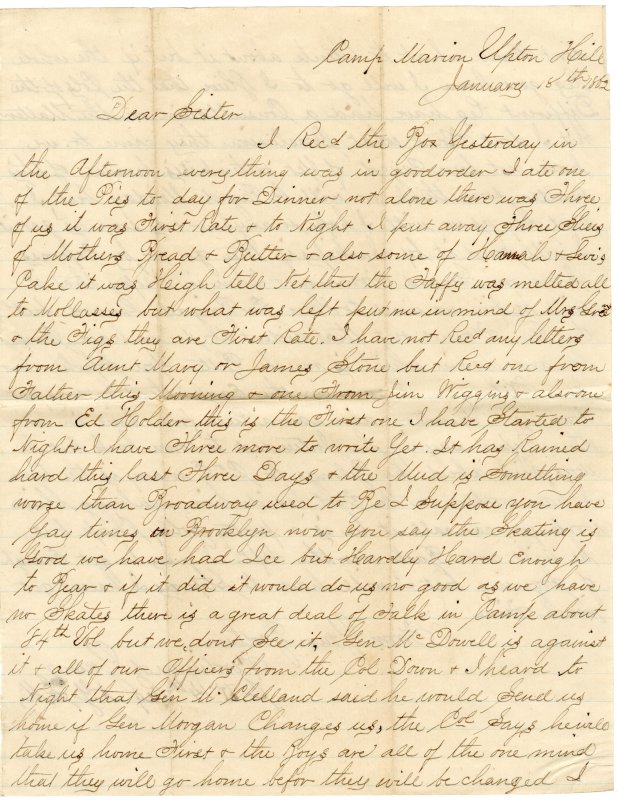 Camp Marion Upton Hill
January 18th 1862
Dear Sister
I Recd the Box Yesterday in
the Afternoon everything was in goodorder I ate one
of the Pies to day for Dinner not alone there was Three
of us it was First Rate & to Night I put away Three Slices
of Mothers Bread & Butter & also some of Hannah & Levi's
Cake it was Heigh tell Net that the Taffy was melted all
to Mollasses but what was left put me in mind of Mrs
& the Figs they are First Rate. I have not Recd any letters
from Aunt Mary or James Stone but Recd one from
Father this Morning & one From Jim Wiggins & also one
from Ed Holder this is the First one I have Started to
Night & I have Three more to write Yet. It has Rained
hard this last Three Days & the Mud is Something
worse than Broadway used to Be I Suppose you have
Gay times in Brooklyn now You say the Skating is
Good we have had Ice but Hardly Hard Enough
to Bear & if it did it would do us no good as we have
no Skates there is a great deal of Talk in Camp about
84th Vol but we dont See it, Gen Mc Dowell is against
it & all of our Officers from the Col Down & I heard to
Night that Gen Mc Clelland said he would Send us
home if Gen Morgan Changes us, the Col Says he will
take us home First & the Boys are all of the one mind
that they will go home befor they will be changed I